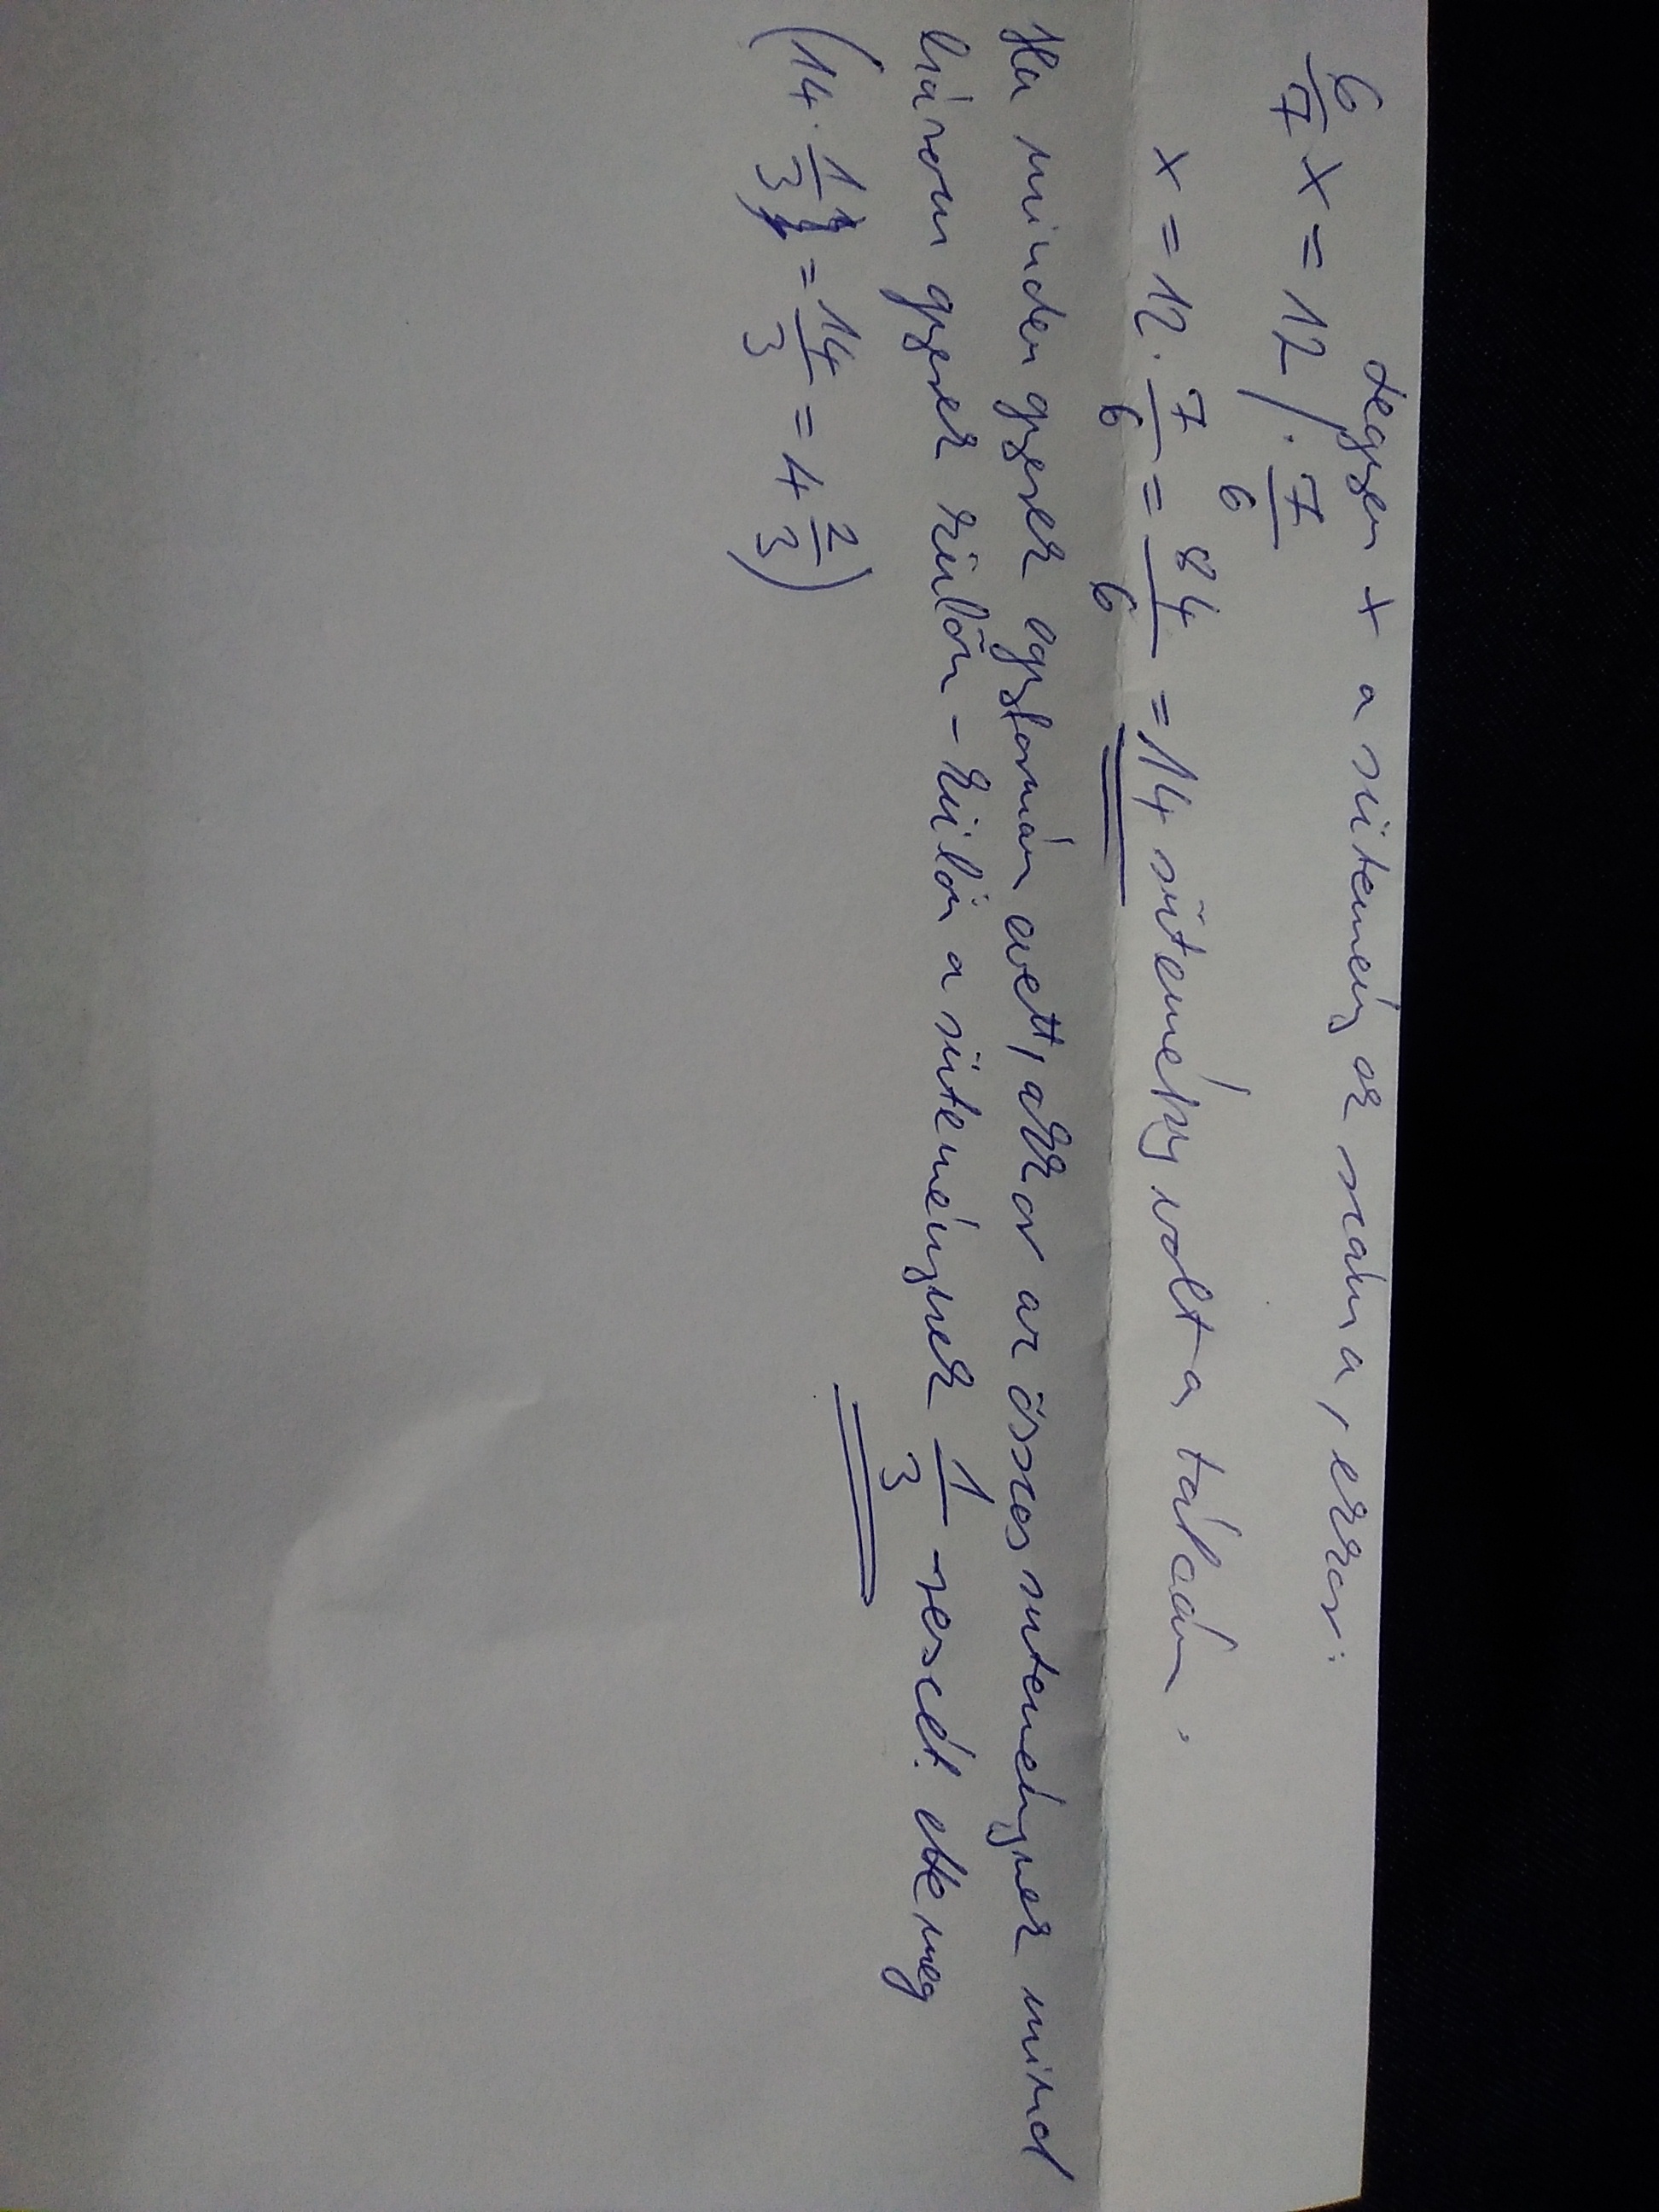 Legyen x a sütemények száma, ekkor:
6/7 x = 12 / · 7/6
x = 12 · 7/6 = 84/6 = 14 sütemény volt a tálcán.
Ha minden gyerek egyformán evett, akkor az összes süteménynek mind
három gyerek külön-külön a süteménynek 1/3-részét ette meg
(14 · 1/3 = 14/3 = 4 2/3)